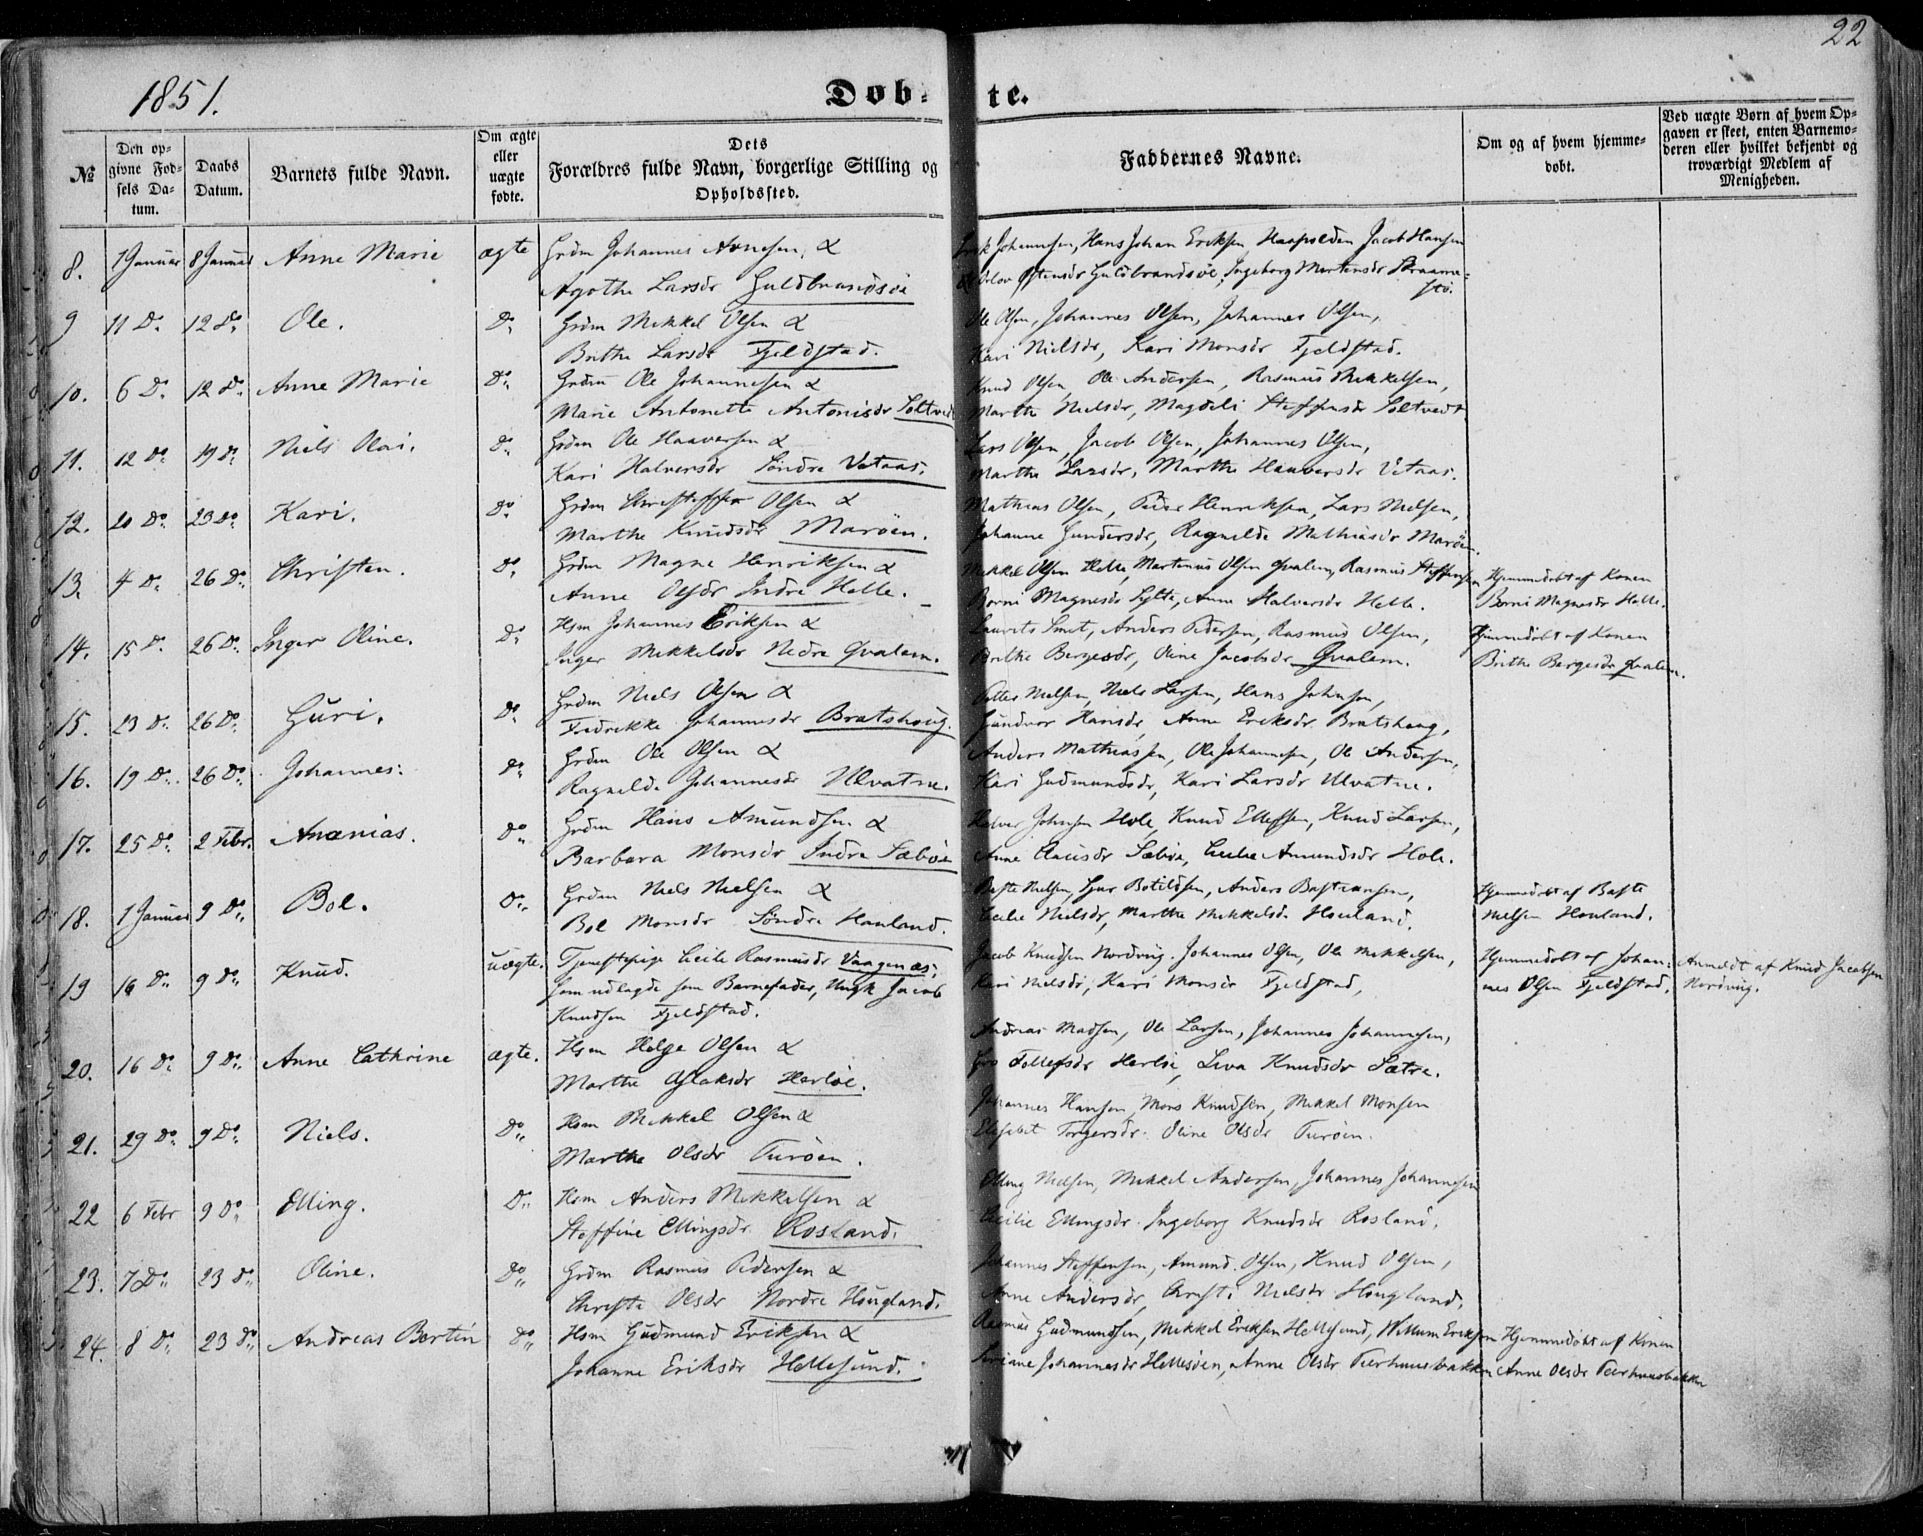 22
1851.
Døbte.
№
Den opgivne Fødsels Datum.
Daabs Datum.
Barnets fulde Navn.
Om ægte eller uægte fødte.
Dets Forældres fulde Navn, borgerlige Stilling og Opholdssted.
Faddernes Navne.
Om og af hvem hjemmedøbt.
Ved uægte Børn af hvem Opgaven er skeet, enten Barnemoderen eller hvilket bekjendt og troværdigt Medlem af Menigheden.
8. 1 Januar 8 Januar Anne Marie ægte Grdm Johannes Arnesen, & Johannesen, Hans Johan Eriksen Jacob Hansen
Agothe Larsdr Guldbrandsøe Guldbrandsøe, Ingeborg Martensdr
9 11 Do 12 Do Ole. Do Grdm Mikkel Olsen & Ole Olsen, Johannes Olsen, Johannes Olsen,
Brithe Larsdr Fjeldstad. Kari Nielsdr, Kari Monsdr Fjeldstad.
10. 6 Do 12 Do Anne Marie Do Grdm Ole Johannesen & Knud Olsen, Ole Andersen, Rasmus Mikkelsen,
Marie Antonette Antonisdr Soltvedt Marthe Nielsdr, Magdeli Steffensdr Soltvedt
11. 12 Do 19 Do Niels Olai. Do Grdm Ole Haaversen & Lars Olsen, Jacob Olsen, Johannes Olsen,
Kari Halversdr Søndre Vetaas. Marthe Larsdr, Marthe Haaversdr Vetaas.
12. 20 Do 23 Do Kari. Do Grdm Christoffer Olsen & Mathias Olsen, Peder Henriksen, Lars Nielsen,
Marthe Knudsdr Marøen. Johanne Gundersdr, Ragnilde Mathiasdr Marøen.
13. 4 Do 26 Do Christen. Do Grdm Magne Henriksen & Mikkel Olsen Helle, Martinus Olsen Qvalem, Rasmus Steffensen Hjemmedøbt af Konen
Anne Olsdr Indre Helle. Borni Magnesdr Sylte, Anne Halversdr Helle. Borni Magnesdr Helle.
14. 15 Do 26 Do Inger Oline. Do Hsm Johannes Eriksen & Laurits Smit, Anders Pedersen, Rasmus Olsen, Hjemmedøbt af Konen
Inger Mikkelsdr Nedre Qvalem. Brithe Bergesdr, Oline Jacobsdr Qvalem. Brithe Bergesdr Qvalem.
15. 23 Do 26 Do Guri. Do Grdm Niels Olsen & Petter Nielsen, Niels Larsen, Hans Johnsen,
Fredrikke Johannesdr Bratshoug. Gundvor Hansdr, Anne Eriksdr Bratshoug,
16. 19 Do 26 Do Johannes. Do Grdm Ole Olsen & Anders Mathiassen, Ole Johannesen, Ole Andersen,
Ragnilde Johannesdr Ulvatne. Kari Gudmundsdr, Kari Larsdr Ulvatne.
17. 25 Do 2 Febr. Ananias. Do Grdm Hans Amundsen & Halver Johnsen Hole, Knud Ellefsen, Knud Larsen,
Barbara Monsdr Indre Sæbøe Anne Clausdr Sæbøe, Cecilie Amundsdr Hole.
18. 1 Januar 9 Do Bol. Do Grdm Niels Nielsen & Baste Nielsen, Botildsen, Anders Bastiansen, Hjemmedøbt af Baste
Bol Monsdr Søndre Houland. Cecilie Nielsdr, Marthe Mikkelsdr Houland. Nielsen Houland.
19 16 Do 9 Do Knud. uægte. Tjenestepige Cecilie Rasmusdr Vaagenæs, Jacob Knudsen Nordvig. Johannes Olsen, Ole Mikkelsen, Hjemmedøbt af Johan- Anmeldt af Knud Jacobsen
som udlagde som Barnefader, Ungk Jacob Kari Nielsdr, Kari Monsdr Fjeldstad, nes Olsen Fjeldstad, Nordvig.
Knudsen Fjeldstad.
20. 16 Do 9 Do Anne Cathrine ægte. Hsm Helge Olsen & Andreas Madsen, Ole Larsen, Johannes Johannesen,
Marthe Aslaksdr Herløe. Gro Tollefsdr Herløe, Siva Knudsdr Sætre.
21. 29 Do 9 Do Niels. Do Hsm Mikkel Olsen & Johannes Hansen, Mons Knudsen, Mikkel Monsen
Marthe Olsdr Turøen. Elisabet Torgersdr. Oline Olsdr Turøen.
22 6 Febr 9 Do Elling. Do Hsm Anders Mikkelsen & Elling Nielsen, Mikkel Andersen, Johannes Johannesen
Steffine Ellingsdr Rosland. Cecilie Ellingsdr. Ingeborg Knudsdr Rosland.
23. 7 Do 23 Do Oline. Do Grdm Rasmus Pedersen & Johannes Steffensen, Amund Olsen, Knud Olsen,
Christi Olsdr Nordre Hougland. Anne Andersdr, Christi Nielsdr Hougland.
24. 8 Do 23 Do Andreas Bertin Do Hsm Gudmund Eriksen & Rasmus Gudmundsen, Mikkel Eriksen Hellesund, Willum Eriksen Hjemmedøbt af Konen
Johanne Eriksdr Hellesund. Johannesdr Hellesøen, Anne Olsdr Teerhuusbakken Anne Olsdr Teerhuusbakken